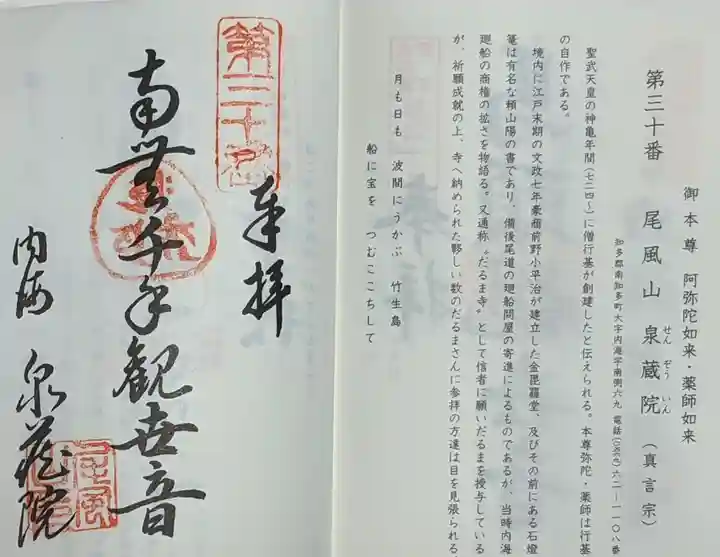 御本尊 阿弥陀如来・薬師如来
第三十番 尾風山 泉蔵院（真言宗）
せんぞういん
知多郡南知多町大字内海字南側六九 電話(〇五六九)六二―一一〇八番
聖武天皇の神亀年間(七二四〜)に僧行基が創建したと伝えられる。本尊弥陀・薬師は行基
の自作である。
境内に江戸末期の文政七年豪商前野小平治が建立した金毘羅堂、及びその前にある石燈
篭は有名な頼山陽の書であり、備後尾道の廻船問屋の寄進によるものであるが、当時内海
廻船の商権の拡さを物語る。又通称〝だるま寺〟として信者に願いだるまを授与している
が、祈願成就の上、寺へ納められた夥しい数のだるまさんに参拝の方達は目を見張られる。
月も日も 波間にうかぶ 竹生島
船に宝を つむここちして
第三十番
奉拝
南無千手観世音
内海 泉蔵院
尾風